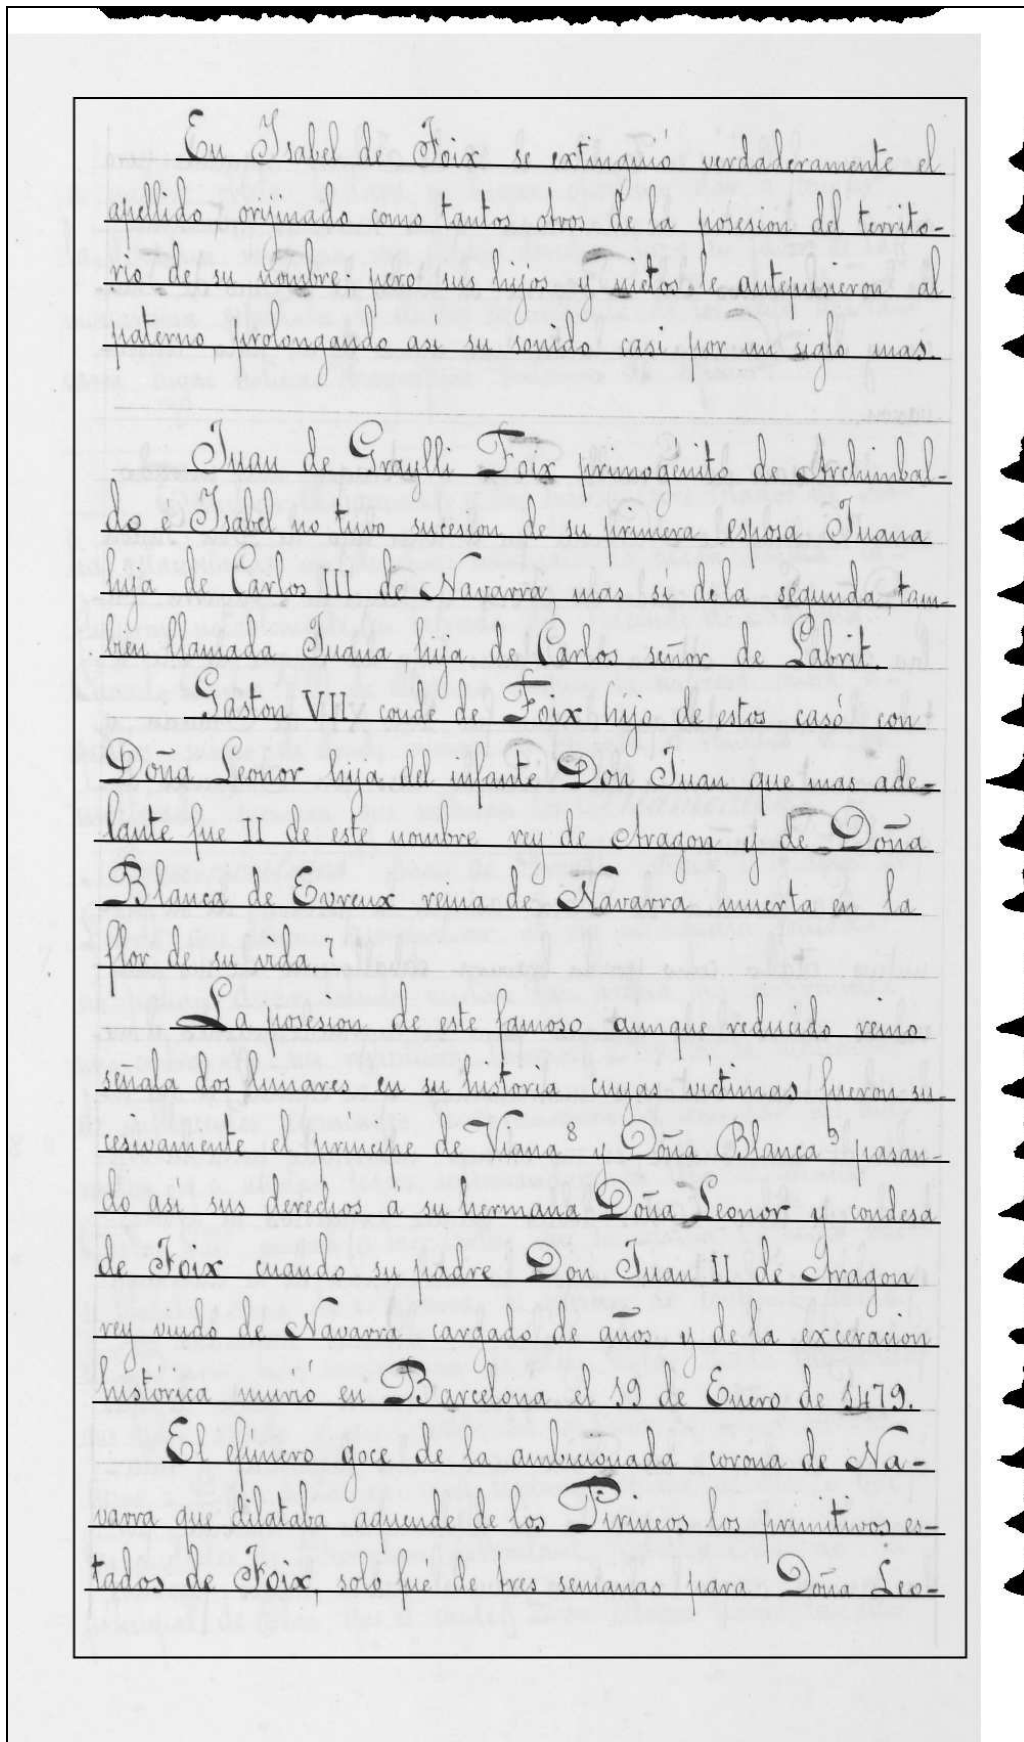 En Isabel de Foix se extinguió verdaderamente el
apellido, orijinado como tantos otros de la posesion del territo-
rio de su nombre; pero sus hijos y nietos le antepusieron al
paterno, prolongando así su sonido casi por un siglo mas.
Juan de Graylli Foix primogénito de Archimbal-
do é Isabel no tuvo sucesion de su primera esposa Juana
hija de Carlos III de Navarra, mas sí de la segunda, tam-
bien llamada Juana, hija de Carlos señor de Labrit.
Gaston VII conde de Foix hijo de estos casó con
Doña Leonor hija del infante Don Juan que mas ade-
lante fue II de este nombre rey de Aragon y de Doña
Blanca de Evreux reina de Navarra muerta en la
flor de su vida.7
La posesion de este famoso aunque reducido reino
señala dos lunares en su historia cuyas víctimas fueron su-
cesivamente el príncipe de Viana 8 y Doña Blanca 9 pasan-
do así sus derechos á su hermana Doña Leonor y condesa
de Foix cuando su padre Don Juan II de Aragon
rey viudo de Navarra cargado de años y de la exceracion
histórica murió en Barcelona el 19 de Enero de 1479.
El efímero goce de la ambicionada corona de Na-
varra que dilataba aquende de los Pirineos los primitivos es-
tados de Foix, solo fué de tres semanas para Doña Leo-